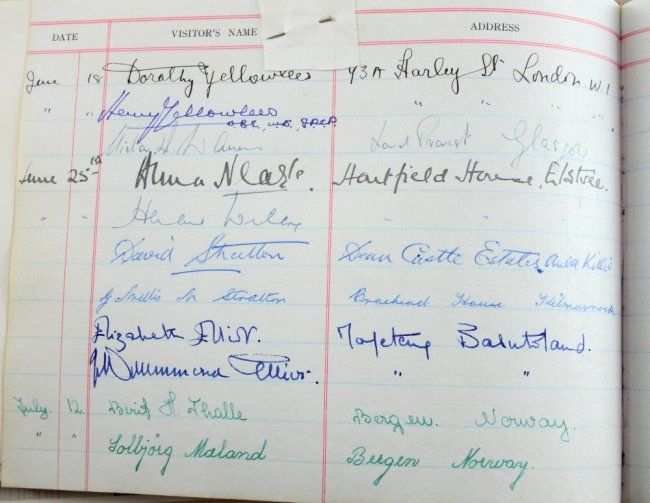 DATE VISITOR'S NAME ADDRESS
June 18 Dorothy Yellowlees 43A Harley St London W.1
" " Henry Yellowlees " " " "
O.B.E. M.C.
Lord Provost Glasgow
June 25th Anna Neagle. Hartfield House, Elstree.
" " Herbert Wilcox " "
David Stratton Dean Castle Estates, Auld Killie
Stratton Braehead House Kilmarnock
Elizabeth Elliot. Mafeteng Basutoland.
Drummond Elliot. " "
July. 12. Berit H. Thalle Bergen. Norway.
" " Solbjörg Maland Bergen Norway.